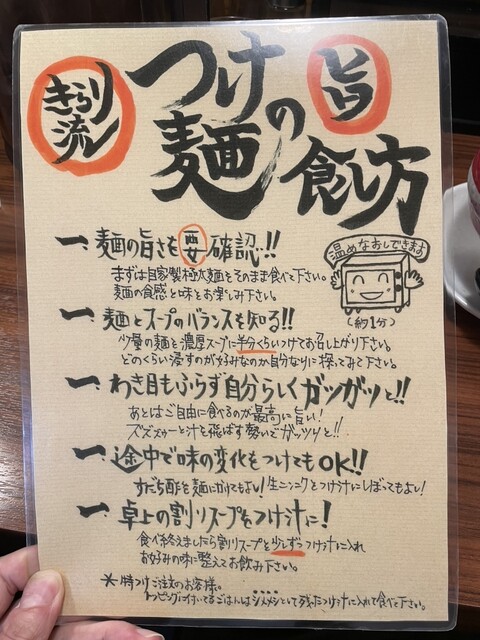 きらり流
つけ麺の旨い食し方
一、麺の旨さを要確認!!
まずは自家製極太麺をそのまま食べて下さい。
麺の食感と味をお楽しみ下さい。
温めなおしできます
(約1分)
一、麺とスープのバランスを知る!!
少量の麺を濃厚スープに半分くらいつけてお召し上がり下さい。
どのくらい浸すのが好みなのか自分なりに探ってみて下さい。
一、わき目もふらず自分らしくガツガツと!!
あとはご自由に食べるのが最高に旨い!
ズズズゥーと汁を飛ばす勢いでガッツリと!!
一、途中で味の変化をつけてもOK!!
すだち酢を麺にかけてもよし!生ニンニクをつけ汁にしぼってもよし!
一、卓上の割りスープをつけ汁に!
食べ終えましたら割りスープを少しずつつけ汁に入れ
お好みの味に整えてお飲み下さい。
*特つけご注文のお客様。
トッピングに付いてるごはんはシメメシとして残ったつけ汁に入れて食べて下さい。